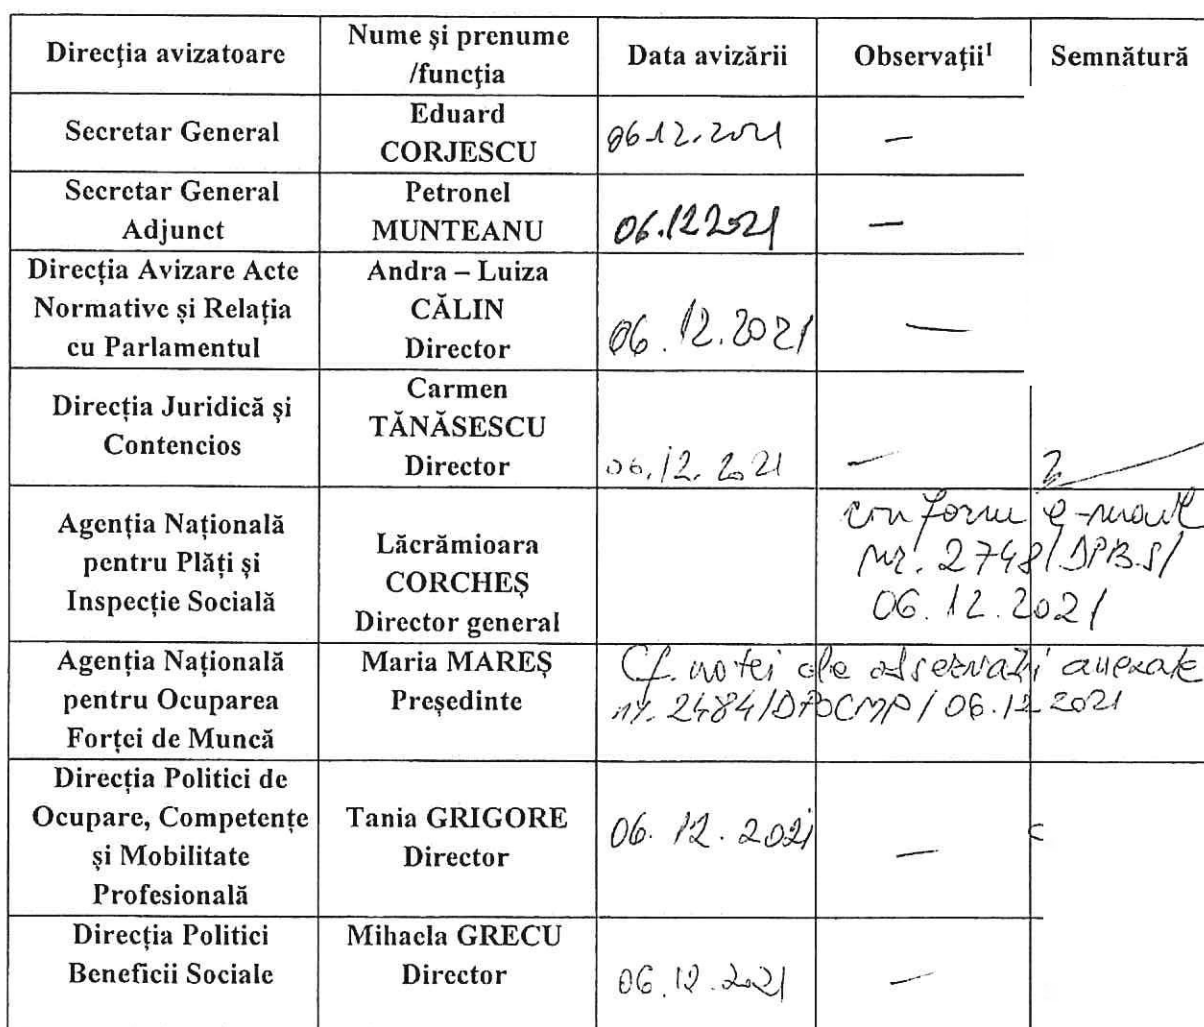 Direcția avizatoare
Nume și prenume
/funcția
Data avizării
Observații¹
Semnătură
Secretar General
Eduard
CORJESCU
06.12.2021
—
Secretar General
Adjunct
Petronel
MUNTEANU
06.12 2021
—
Direcția Avizare Acte
Normative și Relația
cu Parlamentul
Andra – Luiza
CĂLIN
Director
06.12.2021
—
Direcția Juridică și
Contencios
Carmen
TĂNĂSESCU
Director
06.12.2021
—
Agenția Națională
pentru Plăți și
Inspecție Socială
Lăcrămioara
CORCHEȘ
Director general
conform e-mail
nr. 2748/DPBS/
06.12.2021
Agenția Națională
pentru Ocuparea
Forței de Muncă
Maria MAREȘ
Președinte
Cf. notei de observații anexate
nr. 2484/DPOCMP/06.12 2021
Direcția Politici de
Ocupare, Competențe
și Mobilitate
Profesională
Tania GRIGORE
Director
06.12.2021
—
Direcția Politici
Beneficii Sociale
Mihaela GRECU
Director
06.12.2021
—